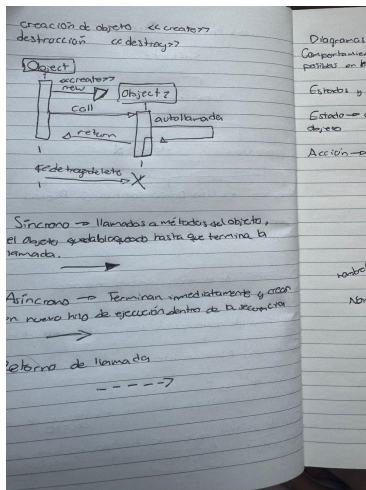 creación de objeto <<create>>
destrucción <<destroy>>
Object
<<create>>
new
Object 2
call
autollamada
return
Síncrono → llamadas a métodos del objeto,
el objeto queda bloqueado hasta que termina la
llamada.
Asíncrono → Terminan inmediatamente y crean
un nuevo hilo de ejecución dentro de la secuencia
Retorno de llamada
Diagramas
Comportamien
posibles en
Estados y
Estado →
objeto
Acción →
nombre